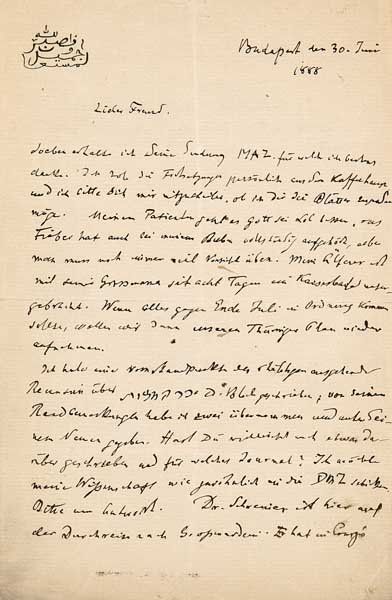 فصبر جميل والله المستعان
Budapest den 30. Juni
1888
Lieber Freund.
soeben erhalte ich Deine Sendung MAZ. für welche ich bestens
danke. Ich hab die persönlich aus dem Kaffehause
und ich bitte Dich mir mitzutheilen, ob ich Dir die Blätter
möge. Meinem Patienten geht es Gott sei Lob besser, das
Fieber hat auch bei meinem Buben vollständig aufgehört, aber
man muss noch immer viel Vorsicht üben. Mein Älterer ist
mit seiner Grossmama seit acht Tagen im Kaiserbade unter-
gebracht. Wenn alles gegen Ende Juli in Ordnung kommen
sollte, wollen wir dann unseren Thüringer Plan wieder
aufnehmen.
Ich habe eine vom Standpunkte des ausgehende
Recension über geschrieben; von seinen
Randbemerkungen habe ich zwei übernommen und unter Sei-
nem Namen gegeben. Hast Du vielleicht auch etwas da-
rüber geschrieben und für welches Journal? Ich möchte
meine wie gewöhnlich in die schicken.
Bitte um Antwort. Dr. Schreiner ist hier auf
der Durchreise nach Grosswardein. Er hat in